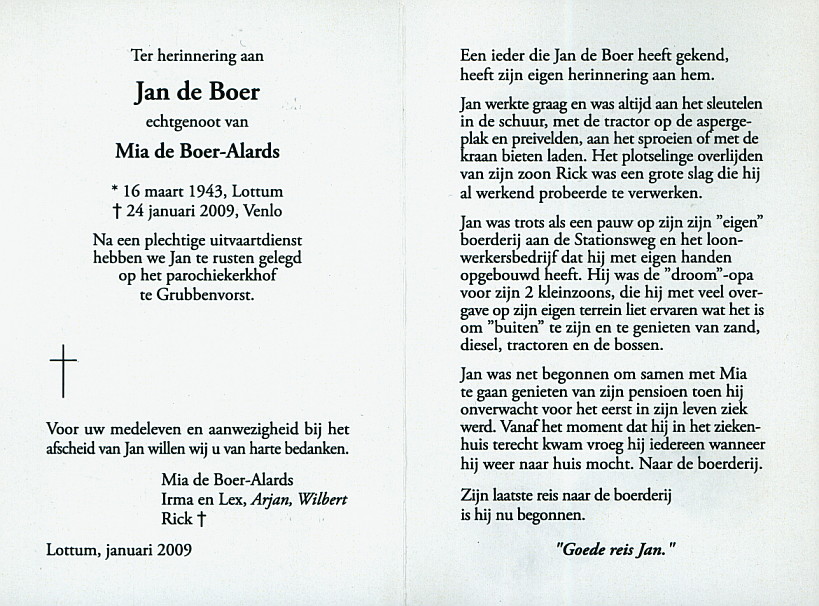 Ter herinnering aan
Jan de Boer
echtgenoot van
Mia de Boer-Alards
* 16 maart 1943, Lottum
† 24 januari 2009, Venlo
Na een plechtige uitvaartdienst
hebben we Jan te rusten gelegd
op het parochiekerkhof
te Grubbenvorst.
Voor uw medeleven en aanwezigheid bij het
afscheid van Jan willen wij u van harte bedanken.
Mia de Boer-Alards
Irma en Lex, Arjan, Wilbert
Rick †
Lottum, januari 2009
Een ieder die Jan de Boer heeft gekend,
heeft zijn eigen herinnering aan hem.
Jan werkte graag en was altijd aan het sleutelen
in de schuur, met de tractor op de asperge-
plak en preivelden, aan het sproeien of met de
kraan bieten laden. Het plotselinge overlijden
van zijn zoon Rick was een grote slag die hij
al werkend probeerde te verwerken.
Jan was trots als een pauw op zijn zijn ”eigen”
boerderij aan de Stationsweg en het loon-
werkersbedrijf dat hij met eigen handen
opgebouwd heeft. Hij was de ”droom”-opa
voor zijn 2 kleinzoons, die hij met veel over-
gave op zijn eigen terrein liet ervaren wat het is
om ”buiten” te zijn en te genieten van zand,
diesel, tractoren en de bossen.
Jan was net begonnen om samen met Mia
te gaan genieten van zijn pensioen toen hij
onverwacht voor het eerst in zijn leven ziek
werd. Vanaf het moment dat hij in het zieken-
huis terecht kwam vroeg hij iedereen wanneer
hij weer naar huis mocht. Naar de boerderij.
Zijn laatste reis naar de boerderij
is hij nu begonnen.
"Goede reis Jan."